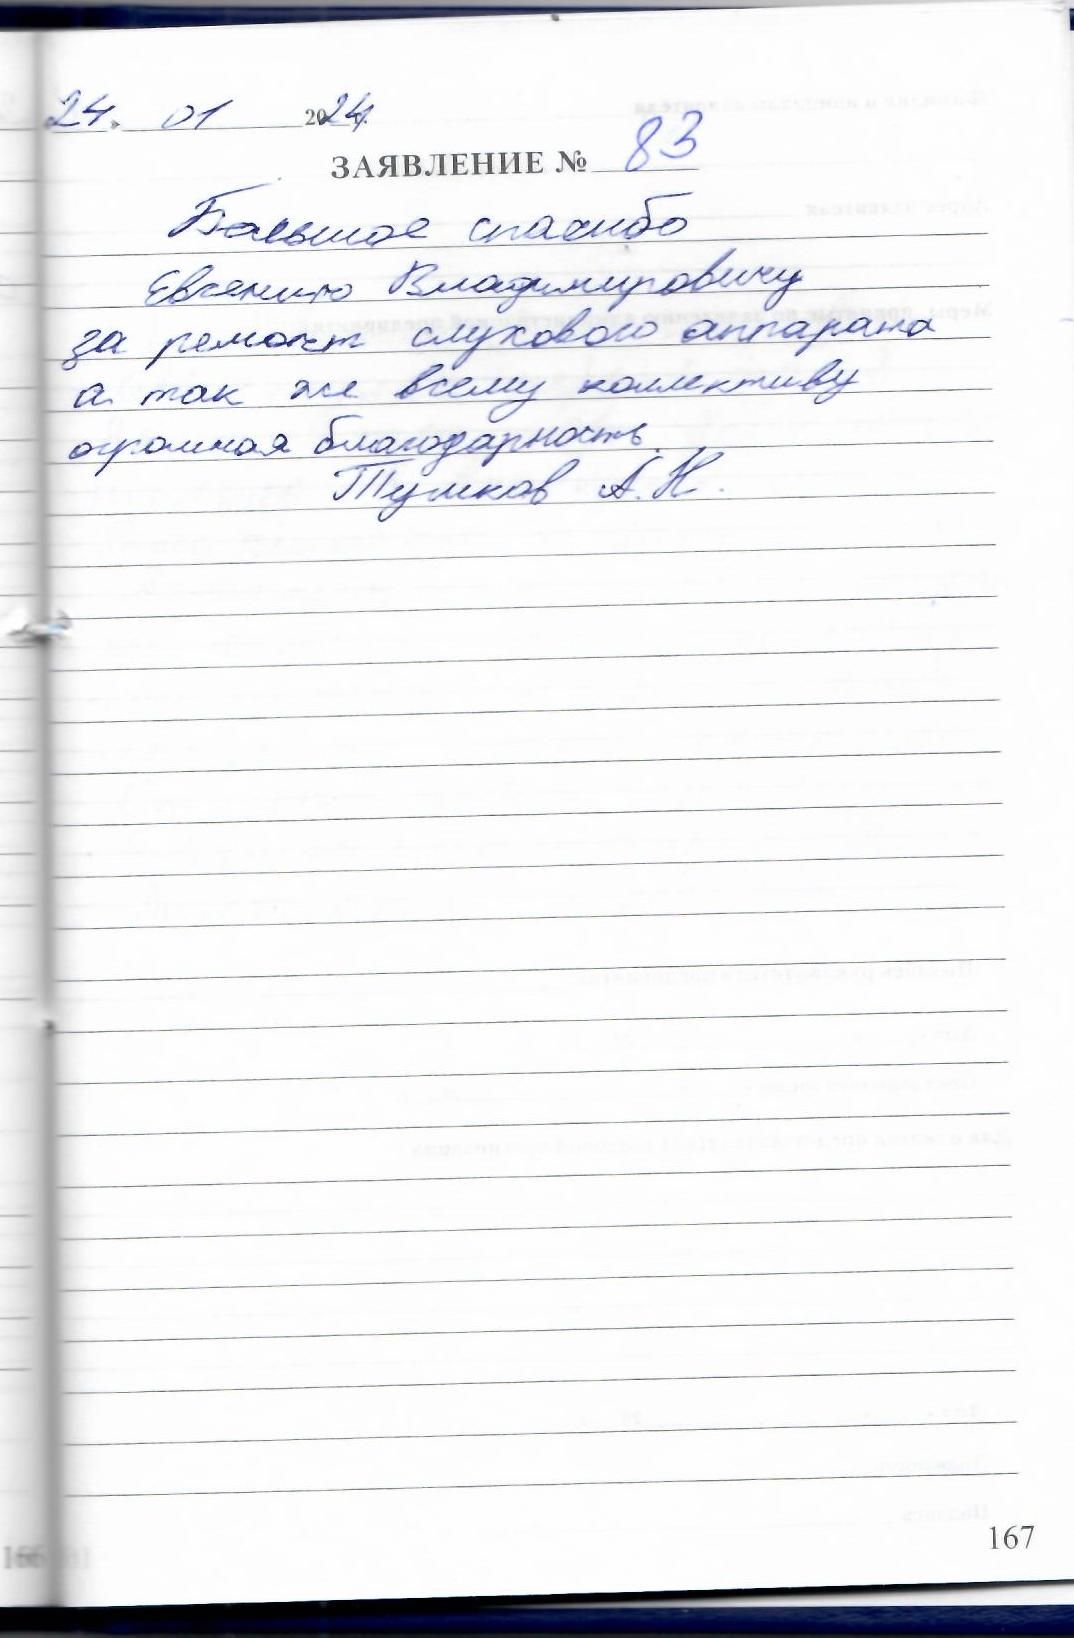 24. 01 2024г.
ЗАЯВЛЕНИЕ № 83
Большое спасибо
Евгению Владимировичу
за ремонт слухового аппарата
а так же всему коллективу
огромная благодарность.
Тумков А.Н.
167
166